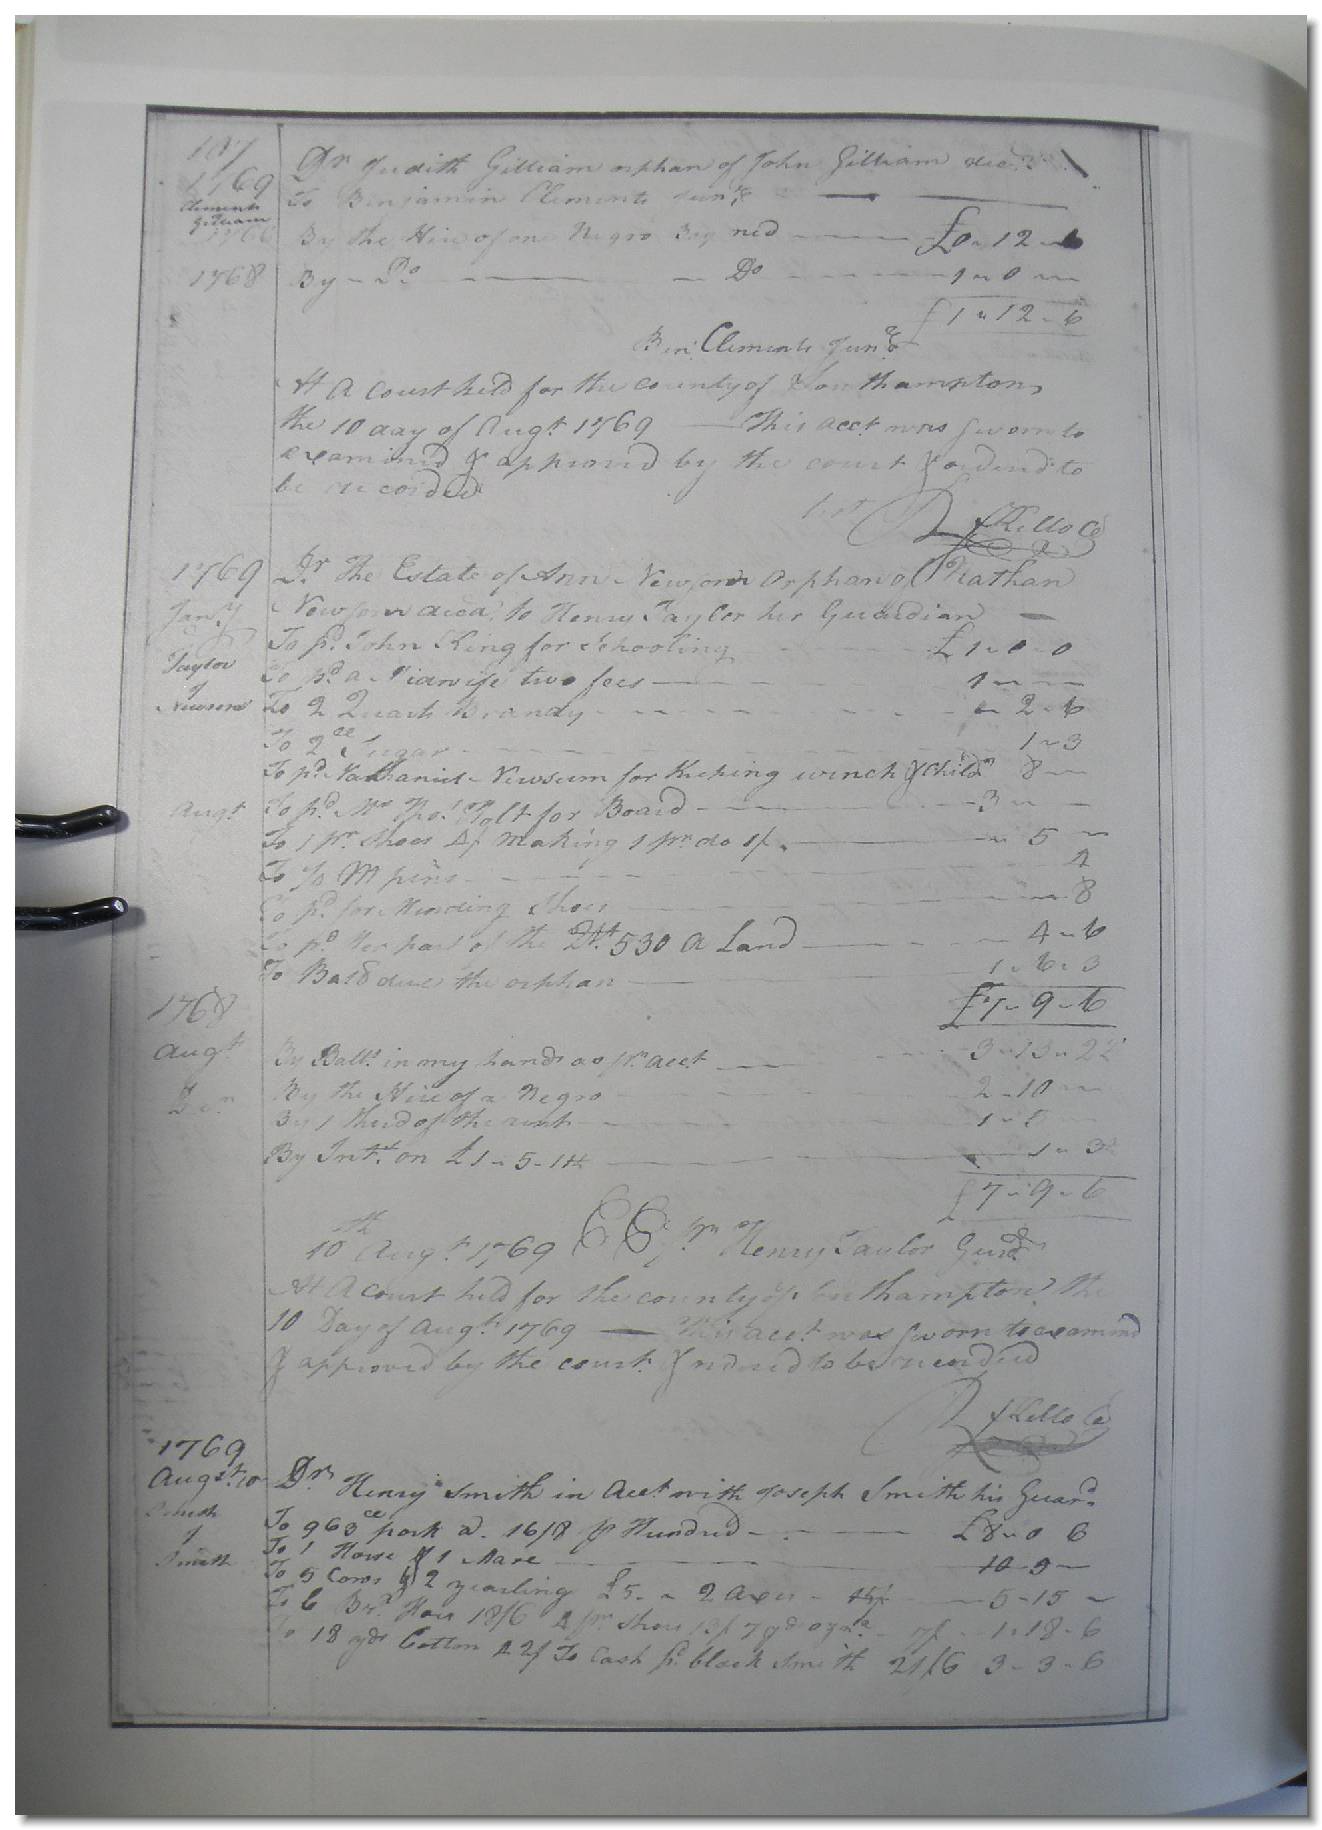 107
1769 Dr Judith Gilliam orphan of John Gilliam decd
Clements
Gilliam
To Benjamin Clements Junr
1766 By the Hire of one Negro Boy ned £0 " 12 " 6
1768 By - Do Do 1 " 0 "
£1 " 12 " 6
Ben: Clements Junr
At A Court held for the county of Southampton
the 10 day of Augt 1769 This acct was sworn to
examined & approved by the court & orderd to
be recorded
Test R Kello C
1769 Dr The Estate of Ann Newsom Orphan of Nathan
Jany Newsom decd to Henry Taylor her Guardian
To pd John King for Schooling £1 " 0 - 0
Taylor
of
Newsom
To pd a Midwife two fees 1 "
To 2 Quarts Brandy 2 " 6
To 2 Sugar 1 " 3
To pd Nathaniel Newsum for Keeping wench & child 8
Augt To pd Mr Thos Holt for Board 3 "
To 1 pr Shoes 4/ making 1 pr do 1/ 5
To ½ M pins 4
To pd for Mending Shoes 8
To pd her part of the 530 A Land 4 " 6
To Balc due the orphan 1 " 6 " 3
£7 " 9 " 6
1768
Augt By Balc in my hands as pr acct 3 " 13 "
By the Hire of a Negro 2 " 10 "
By 1 third of the rent 1 "
By Intt on £1 " 5 -
£7 " 9 " 6
10th Augt 1769 EE pr Henry Taylor Guard
At A Court held for the county of Southampton the
10 Day of Augt 1769 This acct was sworn to examind
& approved by the court & ordered to be recorded
R Kello C
1769
Augst 10 Dr Henry Smith in acct with Joseph Smith his Guard
Smith
of
Smith
To 963 pork a 16/8 pr Hundred £8 " 0 6
To 1 Horse & 1 Mare 10 - 9 -
To 5 Cows & 2 yearling £5 - " 2 Axes - 15/ 5 - 15 "
To 6 Hoes 18/6 4 pr Shoes 13/ 7 yd 7/ 1 " 18 - 6
To 18 yds Cotton a 2/ To Cash pd black Smith 27/6 3 - 3 - 6